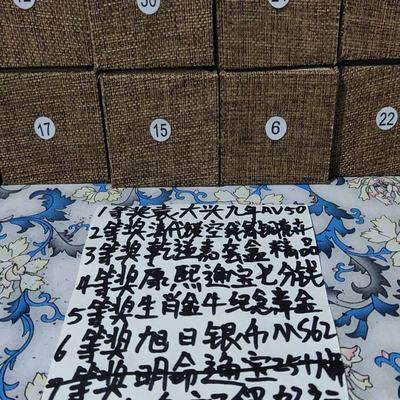 17 15 6 22
1等奖袁大头九年AU50
2等奖清代镂空银器
3等奖乾道嘉套金精品
4等奖康熙通宝七分钱
5等奖生肖金牛纪念章金
6等奖旭日银币MS62
7等奖明命通宝